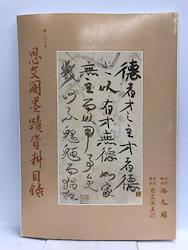 思文閣墨蹟資料目録
德者才之主才者德
之奴有才無德如家
無主而奴用事矣
幾何不魍魎而猖狂
思文閣